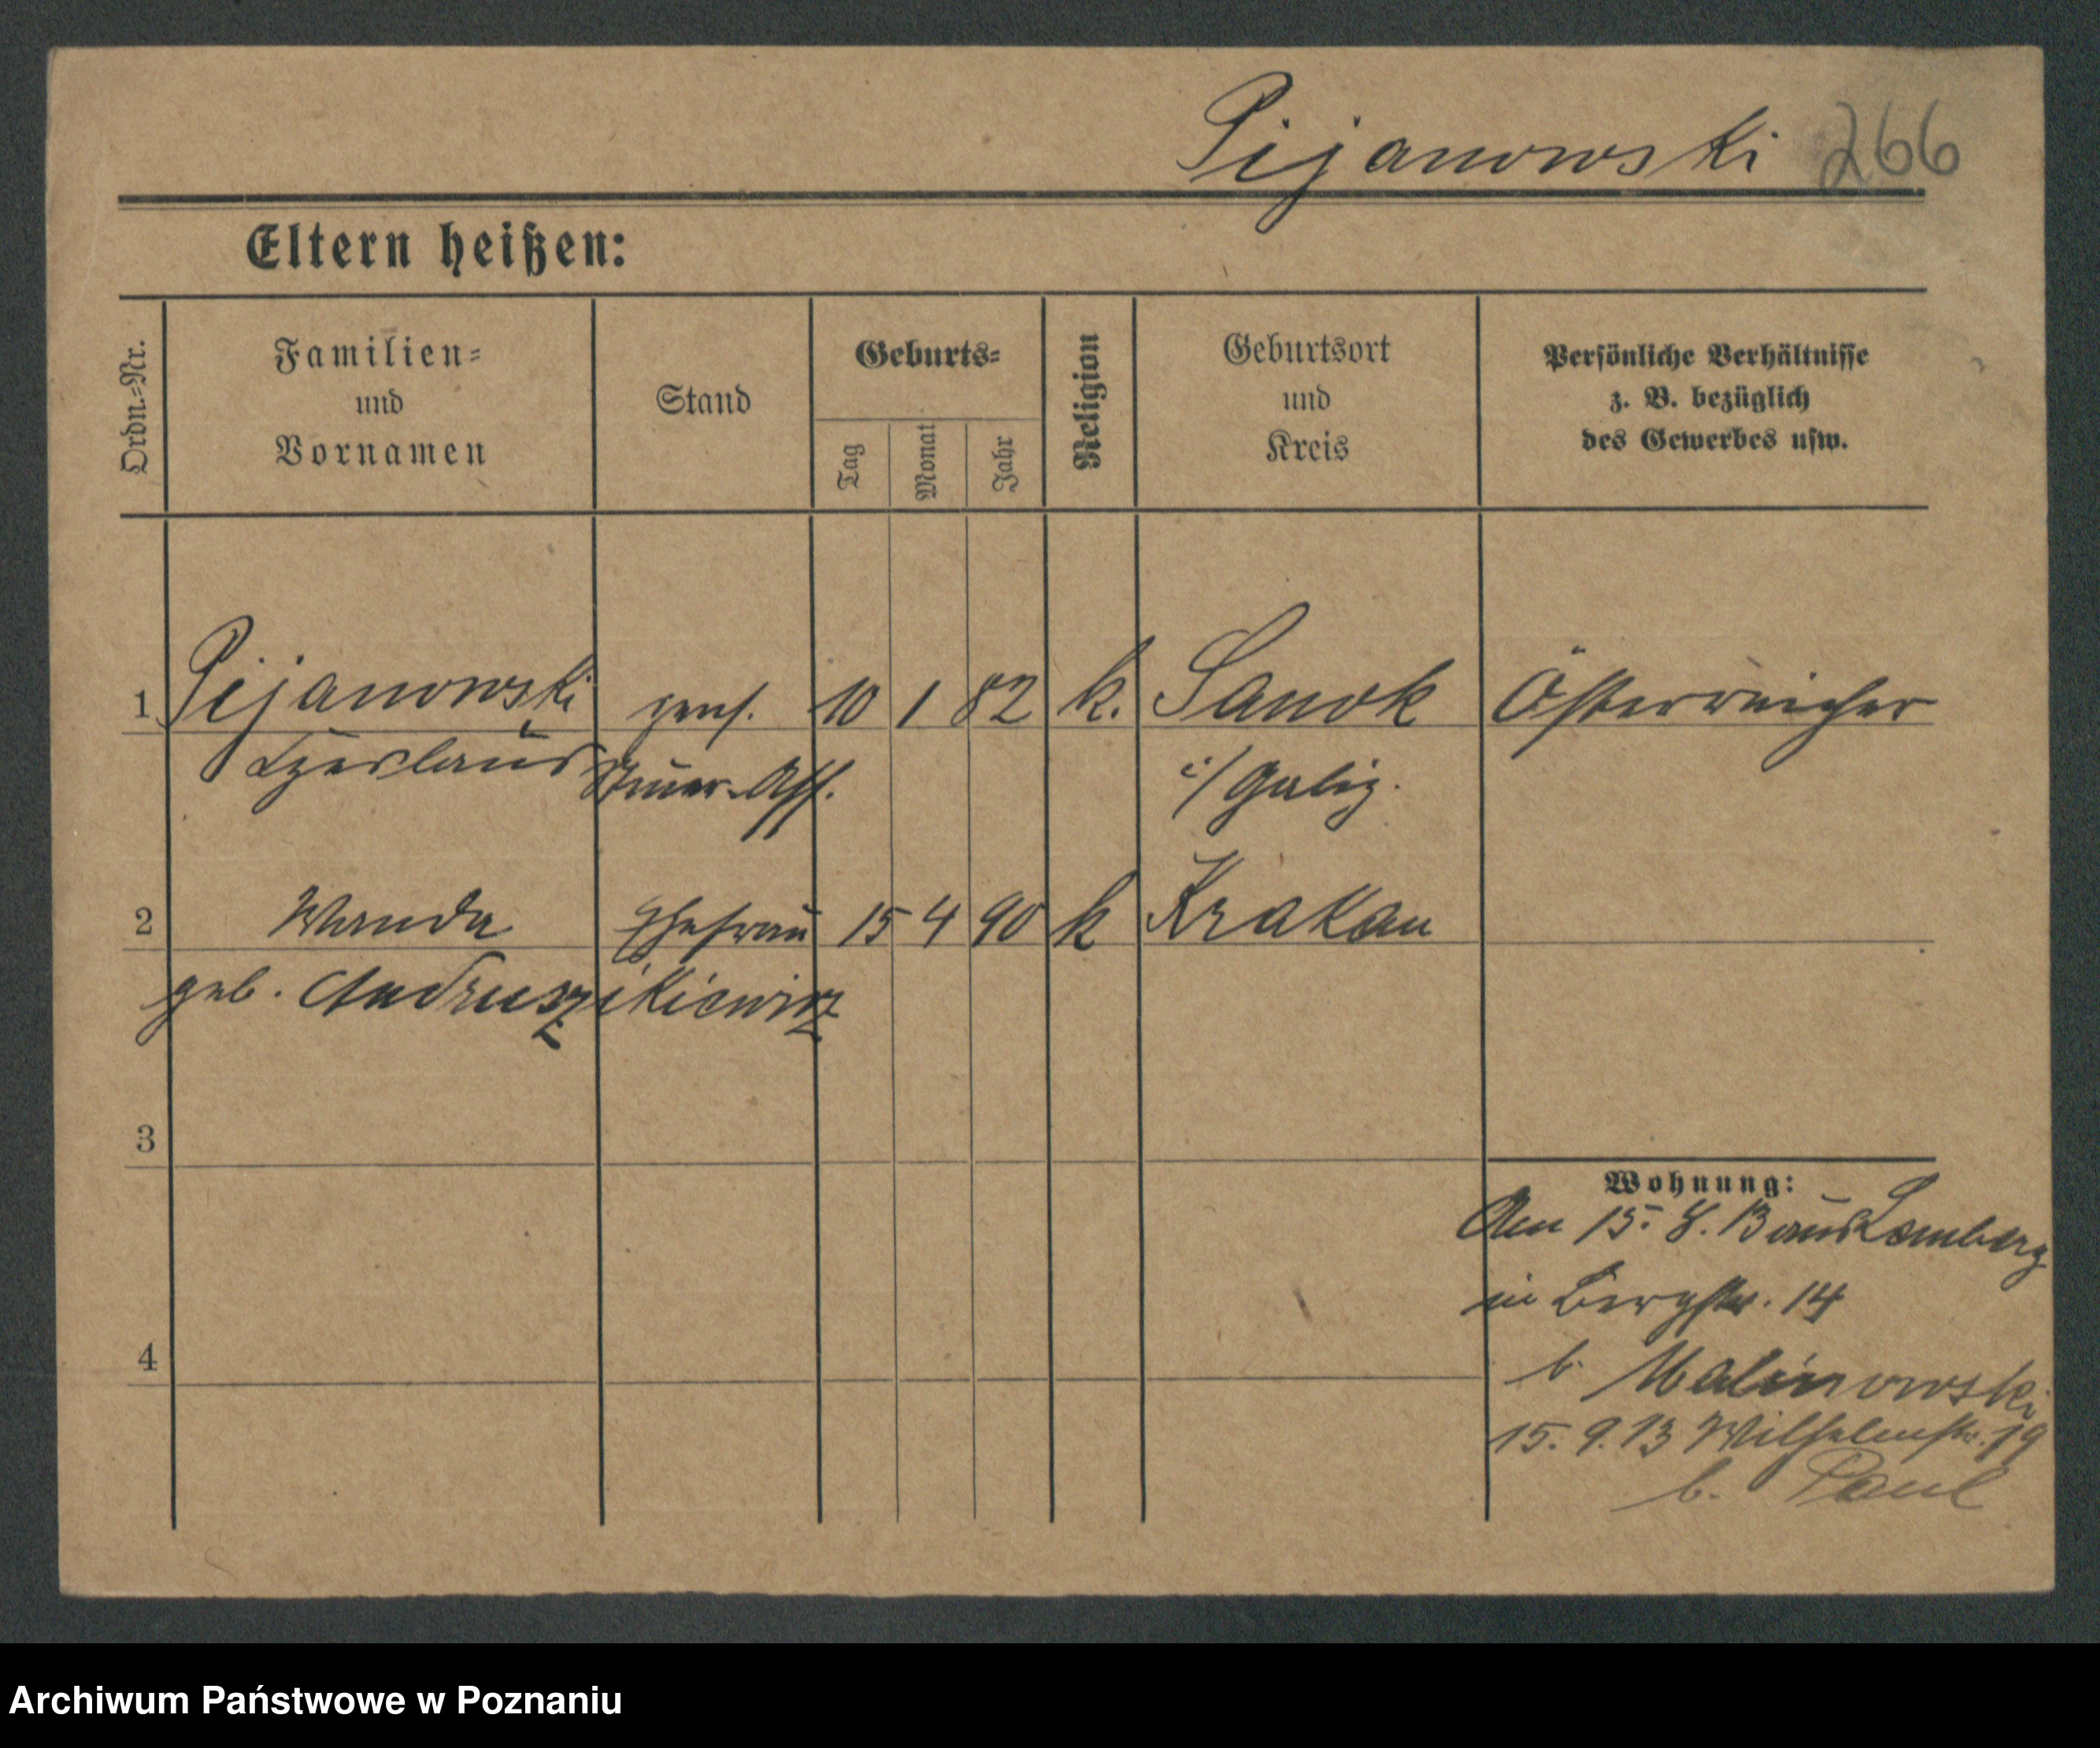 Pijanowski 266
Eltern heißen:
Ordn.-Nr.
Familien-
und
Vornamen
Stand
Geburts-
Tag
Monat
Jahr
Religion
Geburtsort
und
Kreis
Persönliche Verhältnisse
z. B. bezüglich
des Gewerbes usw.
1 Pijanowski 10 1 82 k. Sanok Österreicher
Steuer-Ass. i/Galiz.
2 Wanda Ehefrau 15 4 90 k Krakau
geb. Andruszikiewicz
3
4
Wohnung:
Am 15. 8. 13 aus Lemberg
in Bergstr. 14
b. Malinowski
15. 9. 13 Wilhelmstr. 19
b. Paul
Archiwum Państwowe w Poznaniu